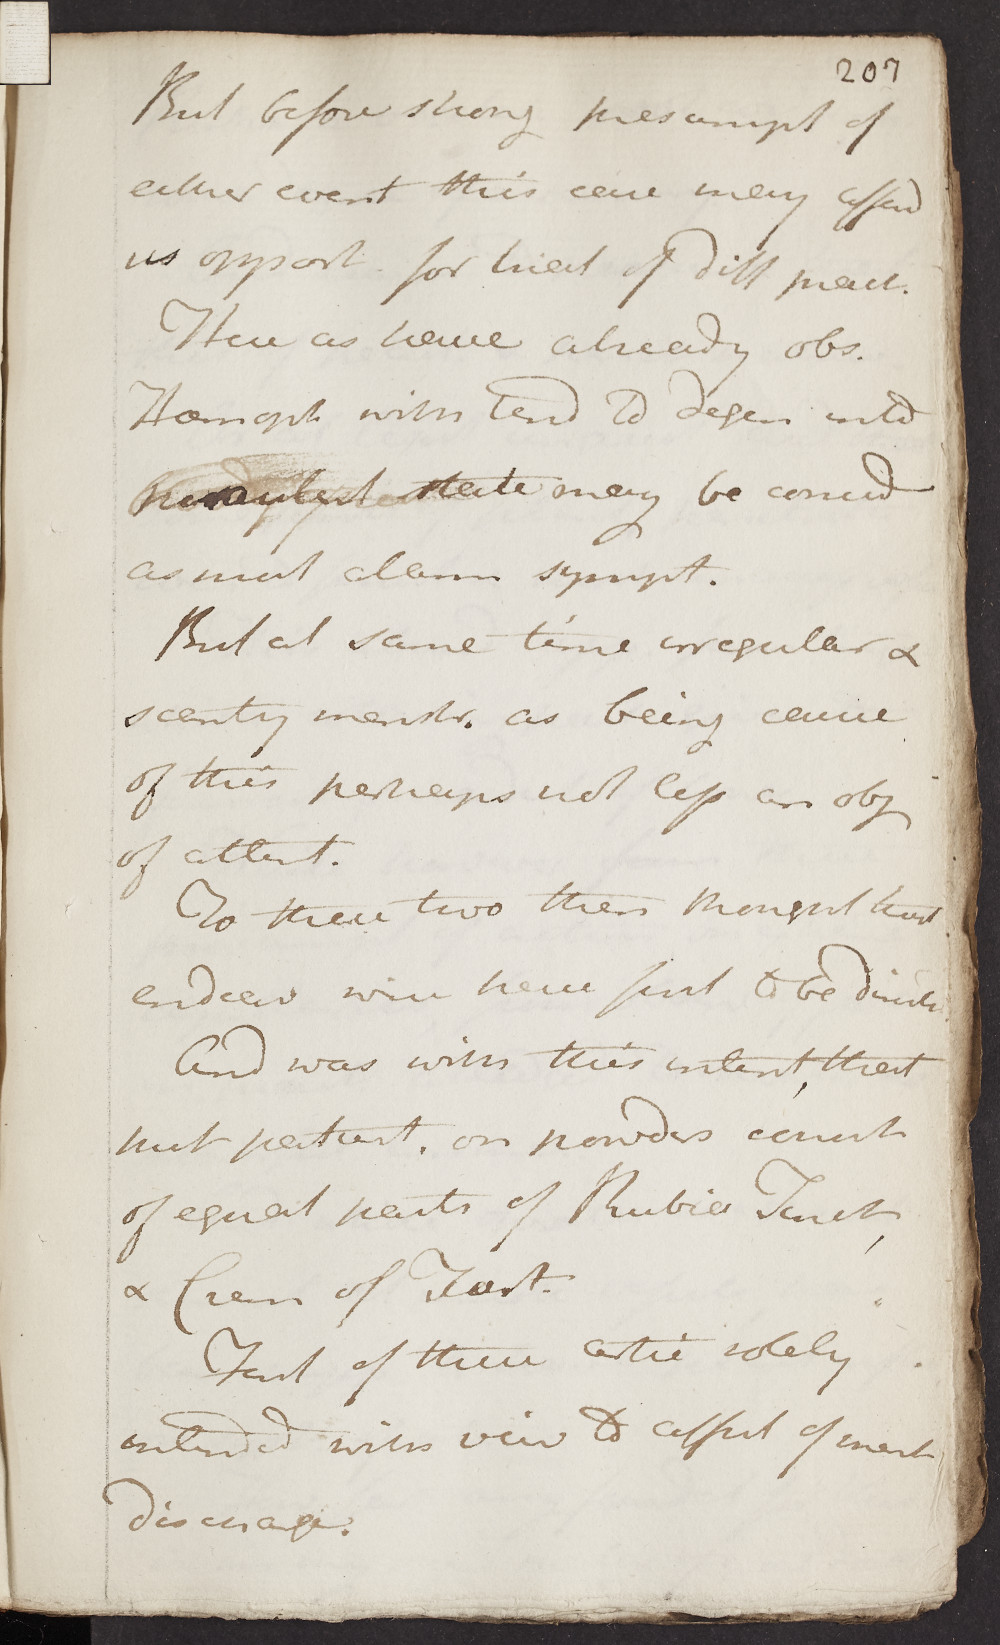 207
But before strong presumpt of
either event this case may afford
us opport. for trial of Diff pract.
Here as have already obs.
Hæmopt with tend to degen into
purulent state may be consid
as most alarm sympt.
But at same time irregular &
scanty menstr. as being cause
of this perhaps not less an obj
of attent.
To these two then thought that
endeav were have first to be Direct
And was with this intent, that
put patient. on powders consist
of equal parts of Rubia Tinct,
& Crem of Tart.
First of these artic solely
intended with view to effect of menst
discharge.